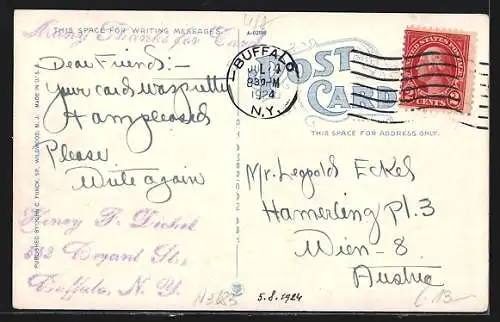 U/A
THIS SPACE FOR WRITING MESSAGES
A-02790
Many Thanks for Card
Dear Friends:-
Your card was pretty
I am pleased
Please
Write again
Henry F.
Bryant St.,
Buffalo, N. Y.
PUBLISHED BY JOHN C. FUNCK, SP. WILDWOOD, N. J. MADE IN U.S.A.
BUFFALO
JUL
830 PM
1924
N.Y.
1
POST
CARD
UNITED STATES POSTAGE
2 CENTS 2
THIS SPACE FOR ADDRESS ONLY.
Mr. Leopold Eckel
Hamerling Pl. 3
Wien - 8
Austria
5.8.1924